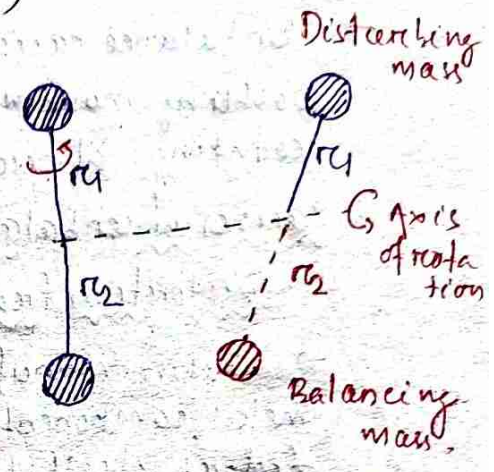 )
Disturbing
mass
r1
r1
Axis
of rota
tion
r2
r2
Balancing
mass.